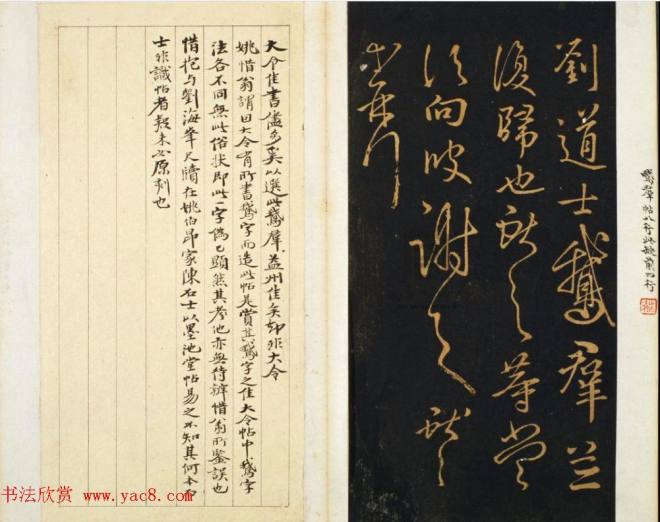 劉道士鵝群並
復歸也獻之等當
須向彼謝之獻之
鵞群帖八行此拓前四行
大令佳書儘多奚以選此鵞群益州佳矣却非大令
姚惜翁謂因大令有所書鵞字而造此帖是賞其鵞字之佳大令帖中鵞字
法各不同無此俗狀即此一字偽已顯然其考他亦無待辨惜翁所鑒誤也
惜抱与劉海峯尺牘在姚伯昂家陳石士以墨池堂帖易之不知其何本
士非識帖者報未必原刻也
书法欣赏 www.yac8.com